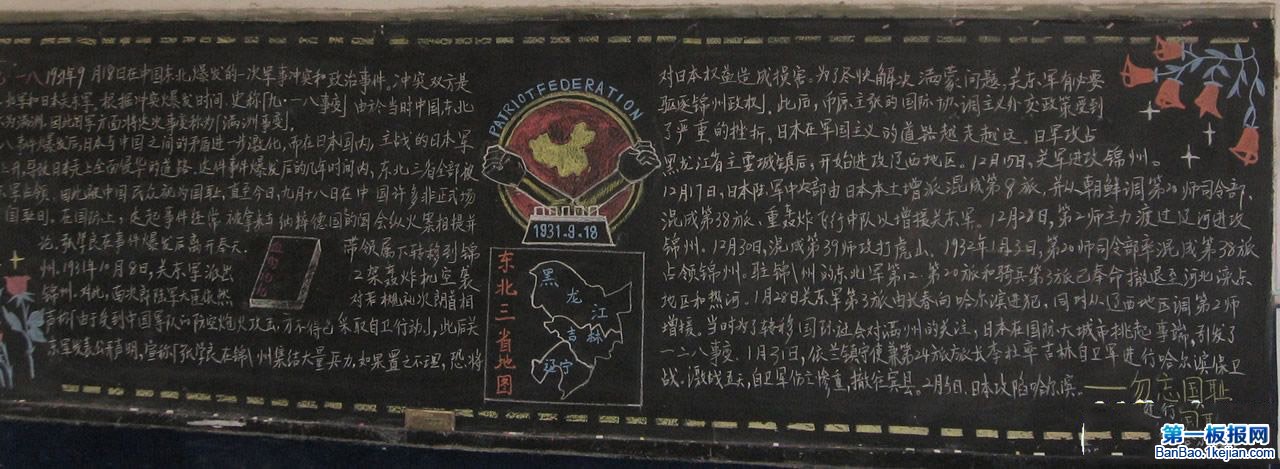 九一八1931年9月18日在中国东北爆发的一次军事冲突和政治事件。冲突双方是
东北军和日本关东军,根据冲突爆发时间,史称「九·一八事变」由於当时中国东北
为满洲,因此日军方面将这次事变称为「满洲事变」。
八事件爆发后,日本与中国之间的矛盾进一步激化,而在日本国内,主战的日本军
上升,导致日本走上全面侵华的道路。这件事件爆发后的几年时间内,东北三省全部被
军占领。因此被中国民众视为国耻,直至今日,九月十八日在中国许多非正式场
国耻日。在国际上,这起事件经常被拿来与纳粹德国的国会纵火案相提并
论。张学良在事件爆发后离开奉天。带领属下转移到锦
州。1931年10月8日,关东军派出 12架轰炸机空袭
锦州。对此,南次郎陆军大臣依然 对若槻礼次郎首相
声称「由于受到中国军队的防空炮火攻击,方不得已采取自卫行动」,此后关
东军发表公开声明,宣称「张学良在锦州集结大量兵力,如果置之不理,恐将
PATRIOT FEDERATION
1931-9-18
东北三省地图
黑龙江
吉林
辽宁
对日本权益造成损害。为了尽快解决满蒙问题,关东军有必要
驱逐锦州政权」。此后,币原主张的国际协调主义外交政策受到
了严重的挫折,日本在军国主义的道路越走越远。日军攻占
黑龙江省主要城镇后,开始进攻辽西地区。12月15日,关军进攻锦州。
12月17日,日本陆军中央部由日本本土增派混成第8旅,并从朝鲜调第20师司令部,
混成第38旅、重轰炸飞行中队以增援关东军。12月28日,第2师主力渡过辽河进攻
锦州。12月30日,混成第39师攻打虎山。1932年1月3日,第20师司令部率混成第38旅
占领锦州。驻锦州的东北军第12、第20旅和骑兵第3旅已奉命撤退至河北滦东
地区和热河。1月28日关东军第3旅由长春向哈尔滨进犯,同时从辽西地区调第2师
增援。当时为了转移国际社会对满州的关注,日本在国际大城市挑起事端,引发了
一二八事变。1月31日,依兰镇守使兼第24旅旅长李杜率吉林自卫军进行哈尔滨保卫
战。激战五天,自卫军伤亡惨重,撤往宾县。2月5日,日本攻陷哈尔滨。
——勿忘国耻
第一板报网
BanBao.1kejian.com